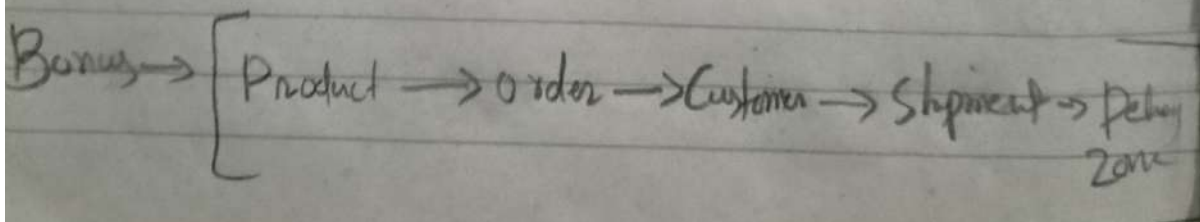 Bonus → [ Product → order → Customer → Shipment → Delivery
Zone